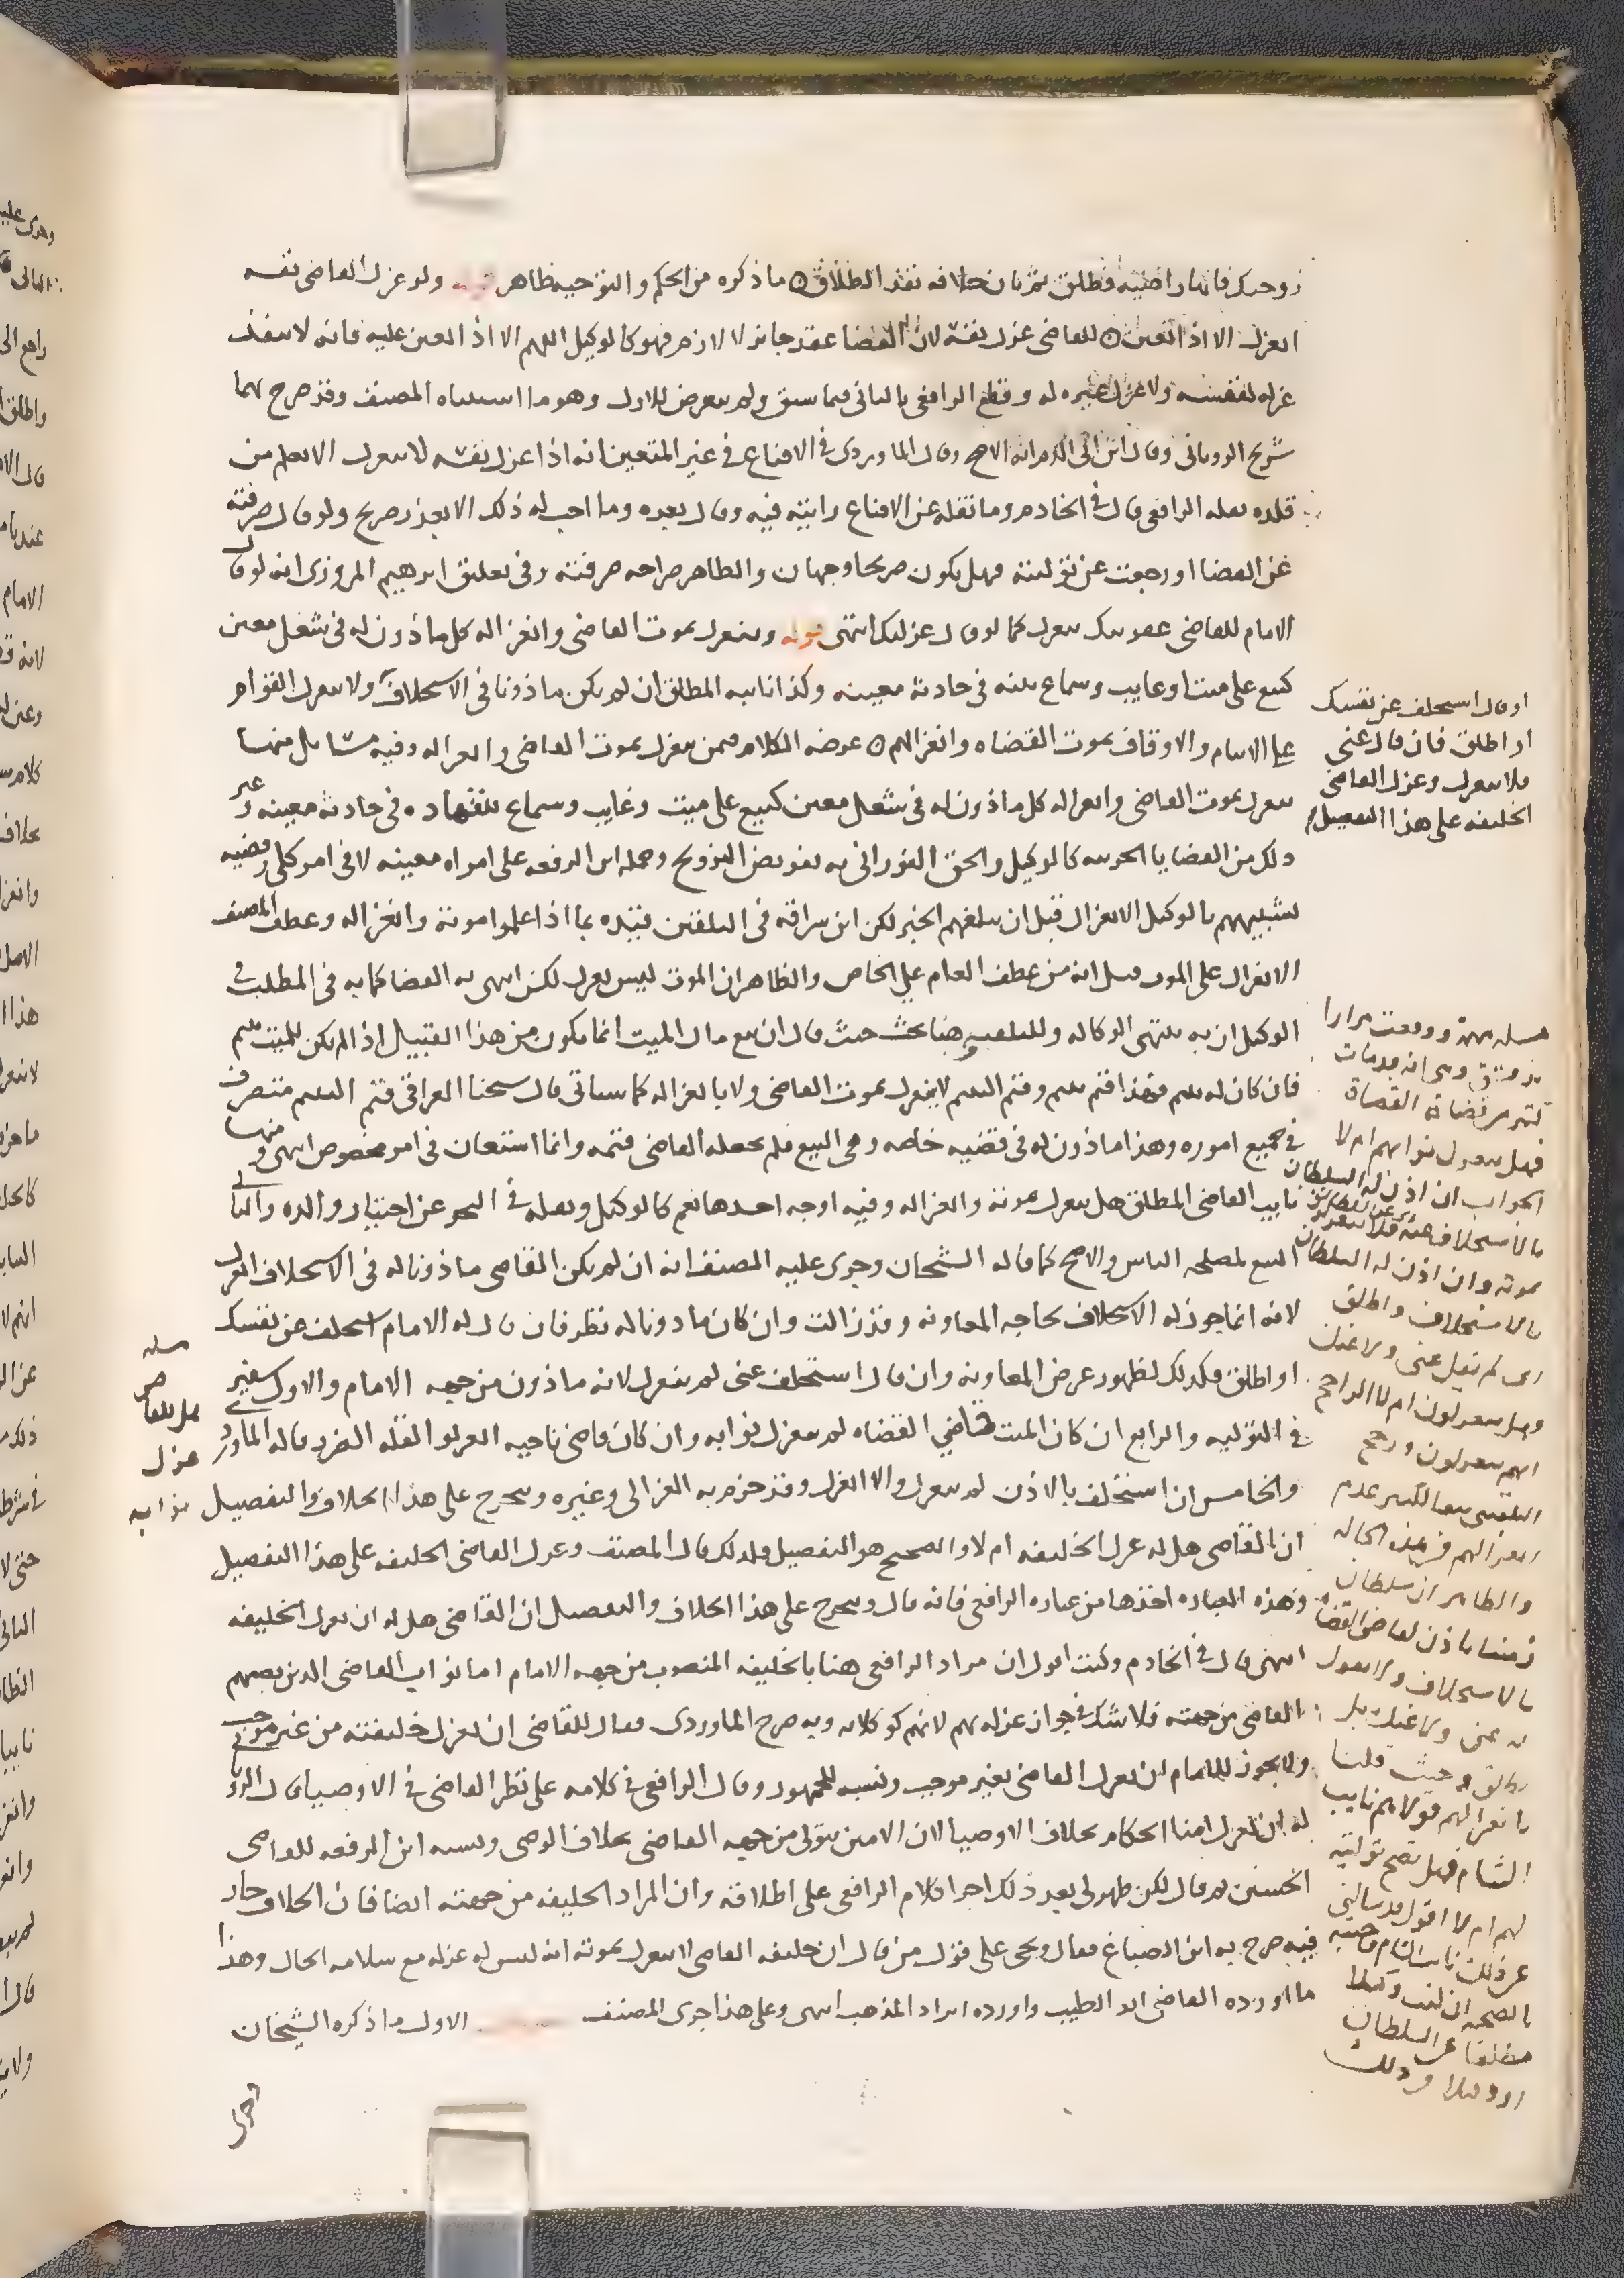 زوجتك فانها راضية فطلق ثم بان خلافه نفذ الطلاق ما ذكره من الحكم والتوجيه ظاهر ولو عزل القاضي نفسه
انعزل الا اذا تعين للقاضي عزل نفسه لان القضا عقد جائز لا لازم فهو كالوكيل اللهم الا اذا تعين عليه فانه لا ينفذ
عزله لنفسه ولا عزل غيره له وقطع الرافعي بالثاني فيما سبق ولم يتعرض للاول وهو ما استثناه المصنف وقد صرح بهما
شريح الروياني وقال ابن ابي الدم انه الاصح وقال الماوردي في الاقناع في غير المتعين انه اذا عزل نفسه لا ينعزل الا بعلم من
قلده نقله الرافعي قال في الخادم وما نقله عن الاقناع رايته فيه وقال بعده وما احب له ذلك الا بعذر صريح ولو قال صرفته
عن القضا او رجعت عن توليته فهل يكون صريحا وجهان والظاهر صراحه صرفته وفي تعليق ابرهيم المروزي انه لو قال
الامام للقاضي عفوتك ينعزل كما لو قال عزلتك انتهى قوله وينعزل بموت القاضي وانعزاله كل ماذون له في شغل معين
كبيع على ميت او غايب وسماع بينه في حادثة معينه وكذا نايبه المطلق ان لم يكن ماذونا في الاستخلاف ولا ينعزل القوام
على الايتام والاوقاف بموت القضاه وانعزالهم غرضه الكلام فيمن ينعزل بموت القاضي وانعزاله وفيه مسايل منها
ينعزل بموت القاضي وانعزاله كل ماذون له في شغل معين كبيع على ميت وغايب وسماع شهاده في حادثة معينه وغير
ذلك من القضايا الجزئيه كالوكيل والحق الفوراني به تفويض التزويج وحمله ابن الرفعه على امراه معينه لا في امر كلي وقضيه
تشبيههم بالوكيل الانعزال قبل ان يبلغهم الخبر لكن ابن سراقه في التلقين قيده بما اذا علموا موته وانعزاله وعطف المصنف
الانعزال على الموت قيل انه من عطف العام على الخاص والظاهر ان الموت ليس بعزل لكن انتهى به القضا كما به في المطلب في
الوكيل ان به ينتهي الوكاله وللبلقيني هنا بحث حيث قال ان بيع مال الميت انما يكون من هذا القبيل اذا لم يكن للميت يتيم
فان كان له يتيم فهذا قيم يتيم وقيم اليتيم لا ينعزل بموت القاضي ولا بانعزاله كما سياتي قال شيخنا العراقي قيم اليتيم متصرف
في جميع اموره وهذا ماذون له في قضيه خاصه وهي البيع فلم يجعله القاضي قيمه وانما استعان في امر مخصوص انتهى ومنها
نايب القاضي المطلق هل ينعزل بموته وانعزاله وفيه اوجه احدها نعم كالوكيل ونقله في البحر عن اختيار والده والثاني
المنع لمصلحه الناس والاصح كما قاله الشيخان وجرى عليه المصنف انه ان لم يكن القاضي ماذونا له في الاستخلاف انعزل
لانه انما جوز له الاستخلاف لحاجه المعاونه وقد زالت وان كان ماذونا له نظر فان قال له الامام استخلف عن نفسك
او اطلق فكذلك لظهور غرض المعاونه وان قال استخلف عني لم ينعزل لانه ماذون من جهه الامام والاول سفير
في التوليه والرابع ان كان الميت قاضي القضاه لم ينعزل نوابه وان كان قاضي ناحيه انعزلوا لقله الضرر قاله الماوردي
والخامس ان استخلف بالاذن لم ينعزل والا انعزل وقد جزم به الغزالي وغيره ويخرج على هذا الخلاف والتفصيل
ان القاضي هل له عزل الخليفه ام لا والصحيح هو التفصيل فلذلك قال المصنف وعزل القاضي الخليفه على هذا التفصيل
وهذه العباره اخذها من عباره الرافعي فانه قال ويخرج على هذا الخلاف والتفصيل ان القاضي هل له ان يعزل خليفه
انتهى قال في الخادم وكنت اقول ان مراد الرافعي هنا بالخليفه المنصوب من جهه الامام اما نواب القاضي الذين نصبهم
القاضي من جهته فلا شك في جواز عزله لهم لانهم كوكلائه وبه صرح الماوردي فقال للقاضي ان يعزل خليفته من غير موجب
ولا يجوز للامام ان يعزل القاضي بغير موجب ونسبه للجمهور وقال الرافعي في كلامه على نظر القاضي في الاوصيا قال الروياني
له ان يعزل امنا الحكام بخلاف الاوصيا لان الامين يتولى من جهه القاضي بخلاف الوصي ونسبه ابن الرفعه للقاضي
الحسين ثم قال لكن ظهر لي بعد ذلك اجرا كلام الرافعي على اطلاقه وان المراد الخليفه من جهته ايضا فان الخلاف جار
فيه صرح به ابن الصباغ فقال ويجي على قول من قال ان خليفه القاضي لا ينعزل بموته انه ليس له عزله مع سلامه الحال وهذا
ما اورده القاضي ابو الطيب واورده ايراد المذهب انتهى وعلى هذا جرى المصنف الاول ما ذكره الشيخان
او قال استخلف عن نفسك
او اطلق فان قال عني
فلا ينعزل وعزل القاضي
الخليفه على هذا التفصيل
مسله مهمة ووقعت مرارا
كثير من قضاة القضاة
فهل ينعزل نوابهم ام لا
الجواب ان اذن له السلطان
بالاستخلاف عنه فلا ينعزل
بموته وان اذن له السلطان
بالاستخلاف واطلق
اي لم يقل عني ولا عنك
وهل ينعزلون ام لا الراجح
انهم ينعزلون ورجح
البلقيني تبعا عدم
انعزالهم في هذه الحاله
والظاهر ان سلطان
زمننا ياذن لقاضي القضاه
بالاستخلاف ولا يقول
له عني ولا عنك بل
يطلق وحيث قلنا
بانعزالهم نايب
الشام فهل تصح توليته
لهم ام لا اقول
عن ذلك نايب الشام
مطلقا عن السلطان
مسله
هل للقاضي
عزل
نوابه